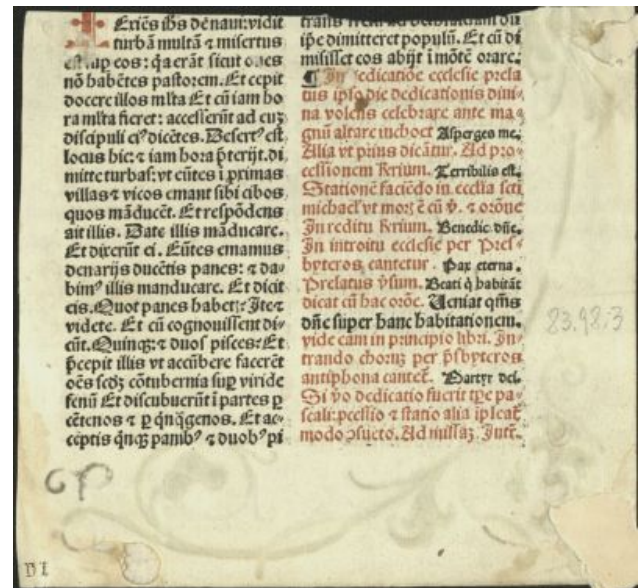 Exiēs ihs de naui: vidit
turbā multā ⁊ misertus
cos: q̄a erāt sicut oues
nō habētes pastorem. Et cepit
docere illos mlta Et cū iam ho
ra mlta fieret: accesserūt ad euȝ
discipuli eiꝰ dicētes. Desertꝰ est
locus hic: ⁊ iam hora p̄terijt. di
mitte turbas: vt eūtes ī primas
villas ⁊ vicos emant sibi cibos
quos māducēt. Et respōdens
ait illis. Date illis māducare.
Et dixerūt ei. Eūtes emamus
denarijs ducētis panes: ⁊ da-
bimꝰ illis manducare. Et dicit
eis. Quot panes habetꝭ: Ite ⁊
videte. Et cū cognouissent di-
cūt. Quinqꝫ: ⁊ duos pisces: Et
p̄cepit illis vt accūbere facerēt
oēs scdȝ cōtubernia suꝑ viride
fenū Et discubuerūt ī partes ꝑ
cētenos ⁊ ꝑ q̄nq̄genos. Et ac-
ceptis q̄nqꝫ panibꝰ ⁊ duobꝰ pi
trans fretū ad
ip̄e dimitteret populū. Et cū di
misisset eos abijt ī mōtē orare.
¶ In dedicatiōe ecclesie prela
tus ipso die dedicationis diui-
na volens celebrare ante ma-
gnū altare inchoet Asperges me.
Alia vt prius dicātur. Ad pro-
cessionem Rerium. Terribilis est.
Stationē faciēdo in ecclīa scti
michael' vt morꝭ ē cū v̄. ⁊ orōne
In reditu Rerium. Benedic dn̄e.
In introitu ecclesie per Pres-
byteros cantetur. Pax eterna.
Prelatus v̄sum. Beati q̄ habitāt
dicat cū hac orōe. Ueniat q̄ms
dn̄e super hanc habitationem.
vide eam in principio libri. In-
trando chorū per p̄sbyteros
antiphona cantet᷑. Martyr dei.
Si v̄o dedicatio fuerit tꝑe pa-
scali: ꝓcessio ⁊ statio alia ip̄leat᷑
modo ↄsueto. Ad missaȝ Intr̄.
83.98:3
D I